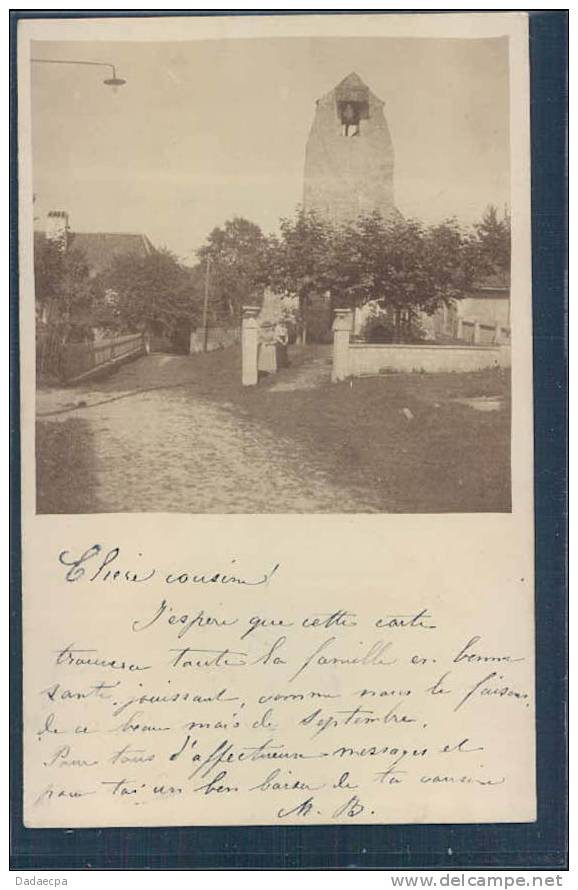 Chère cousine!
J'espère que cette carte
trouvera toute la famille en bonne
santé, jouissant, comme nous le faisons,
de ce beau mois de Septembre.
Pour tous d'affectueux messages et
pour toi un bon baiser de ta cousine
M. B.
Dadaecpa
www.delcampe.net